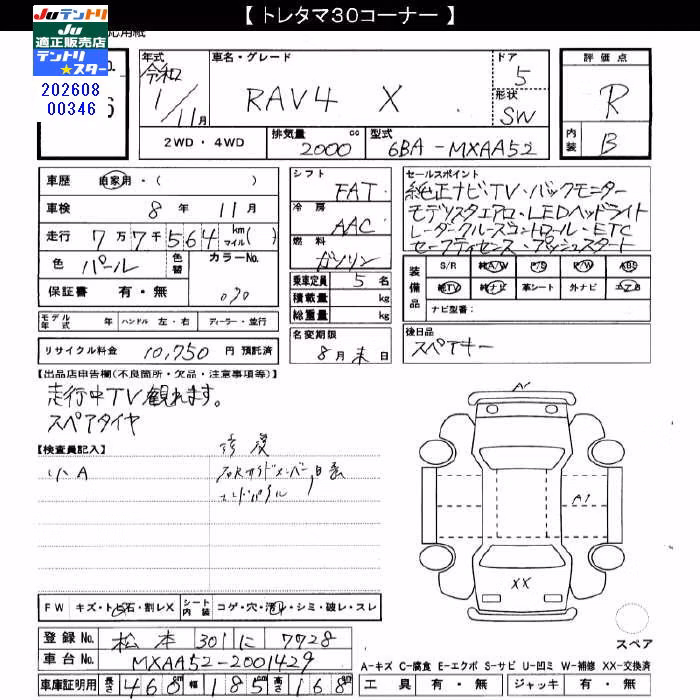 【 トレタマ30コーナー 】
Juテントリ
Ju
適正販売店
テントリ
★スター
202608
00346
年式 令和 1/11月
車名・グレード RAV4 X
ドア 5
形状 SW
評価点 R
内装 B
2WD・4WD
排気量 2000 cc
型式 6BA-MXAA52
車歴 自家用・( )
車検 8年 11月
走行 7万7千564 km マイル( )
色 パール 色替
カラーNo. 070
保証書 有・無
モデル年式 年 ハンドル 左・右 ディーラー・並行
リサイクル料金 10,750 円 預託済
シフト FAT
冷房 AAC
燃料 ガソリン
乗車定員 5 名
積載量 kg
総重量 kg
名変期限 8月末日
セールスポイント
純正ナビTV・バックモニター
モデリスタエアロ・LEDヘッドライト
レーダークルーズコントロール・ETC
セーフティセンス・プッシュスタート
装備品 S/R 純A/W P/S P/W ABS
純TV 純ナビ 革シート 外ナビ エアB
ナビ型番:
後日品
スペアキー
【出品店申告欄(不良箇所・欠品・注意事項等)】
走行中TV観れます。
スペアタイヤ
【検査員記入】
小A
修復
右Rサイドメンバー,
エンドパネル
A1
A1
XX
FW キズ・ト石・割レX シート内装 コゲ・穴・汚レ・シミ・破レ・スレ
登録No. 松本 301 に 7728
車台No. MXAA52-2001429
車庫証明用 長さ 468cm 幅 185cm 高さ 168cm
スペア
A-キズ C-腐食 E-エクボ S-サビ U-凹ミ W-補修 XX-交換済
工具 有・無 ジャッキ 有・無